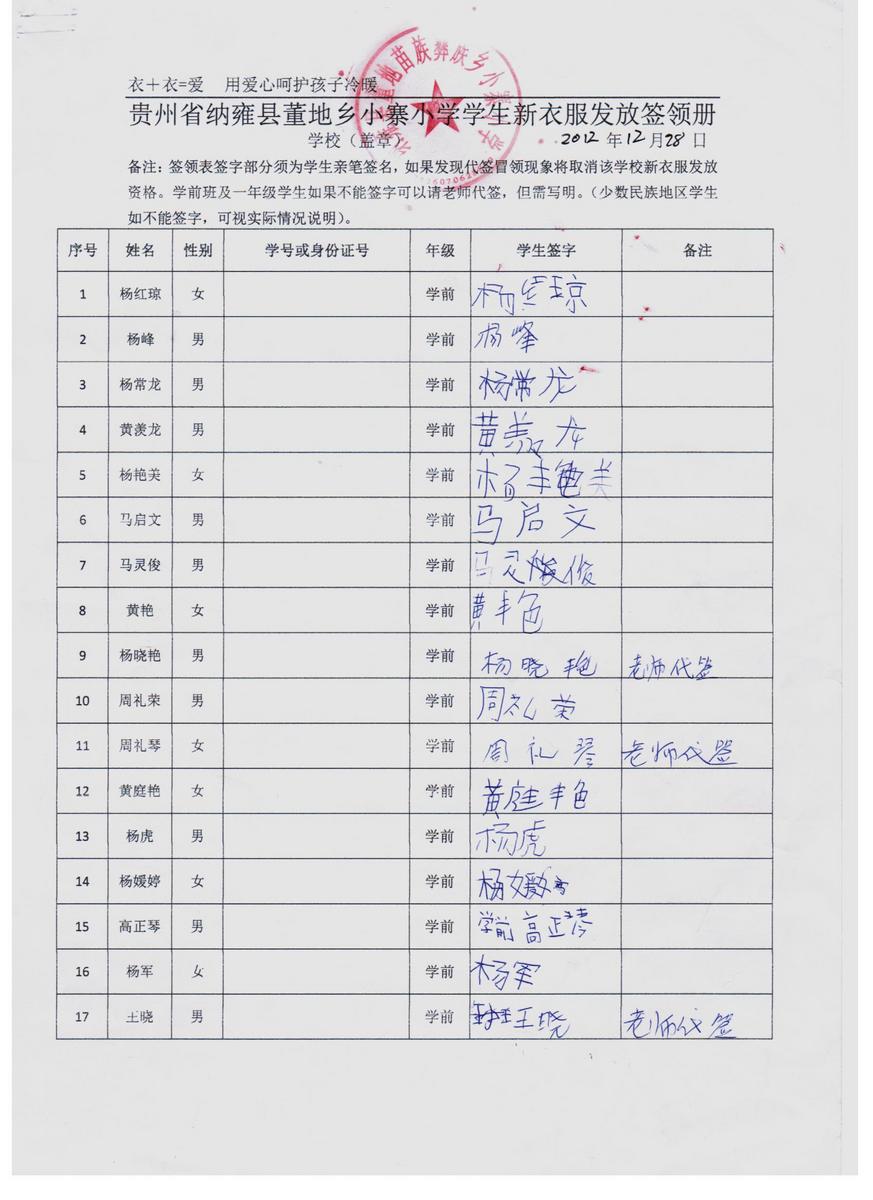 衣＋衣=爱　用爱心呵护孩子冷暖
贵州省纳雍县董地乡小寨小学学生新衣服发放签领册
学校（盖章） 2012 年 12 月 28 日
备注：签领表签字部分须为学生亲笔签名，如果发现代签冒领现象将取消该学校新衣服发放
资格。学前班及一年级学生如果不能签字可以请老师代签，但需写明。（少数民族地区学生
如不能签字，可视实际情况说明）。
序号 姓名 性别 学号或身份证号 年级 学生签字 备注
1 杨红琼 女 学前 杨红琼
2 杨峰 男 学前 杨峰
3 杨常龙 男 学前 杨常龙
4 黄羡龙 男 学前 黄羡龙
5 杨艳美 女 学前 杨艳美
6 马启文 男 学前 马启文
7 马灵俊 男 学前 马灵俊
8 黄艳 女 学前 黄艳
9 杨晓艳 男 学前 杨晓艳 老师代签
10 周礼荣 男 学前 周礼荣
11 周礼琴 女 学前 周礼琴 老师代签
12 黄庭艳 女 学前 黄庭艳
13 杨虎 男 学前 杨虎
14 杨媛婷 女 学前 杨媛
15 高正琴 男 学前 学前 高正琴
16 杨军 女 学前 杨军
17 王晓 男 学前 王晓 老师代签